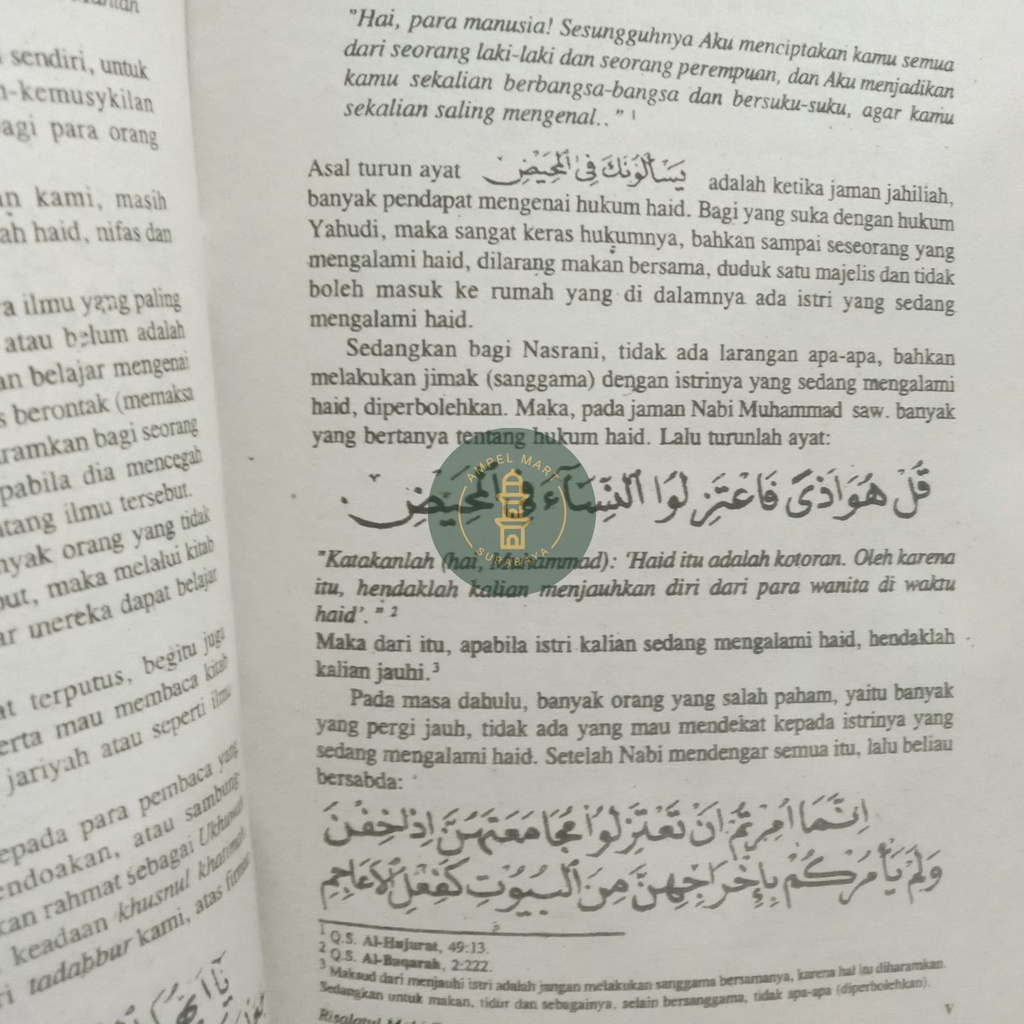 sendiri, untuk
-kemusykilan
agi para orang
kami, masih
ah haid, nifas dan
a ilmu yang paling
atau belum adalah
an belajar mengenai
s berontak (memaksa
ramkan bagi seorang
pabila dia mencegah
tang ilmu tersebut.
nyak orang yang tidak
but, maka melalui kitab
ar mereka dapat belajar
at terputus, begitu juga
erta mau membaca kitab
jariyah atau seperti ilmu
epada para pembaca yang
endoakan, atau sambung
kan rahmat sebagai Ukhuwah
keadaan khusnul khatimah
ri tadabbur kami, atas
"Hai, para manusia! Sesungguhnya Aku menciptakan kamu semua
dari seorang laki-laki dan seorang perempuan, dan Aku menjadikan
kamu sekalian berbangsa-bangsa dan bersuku-suku, agar kamu
sekalian saling mengenal.." 1
Asal turun ayat يَسْأَلُوْنَكَ فِى الْمَحِيْضِ adalah ketika jaman jahiliah,
banyak pendapat mengenai hukum haid. Bagi yang suka dengan hukum
Yahudi, maka sangat keras hukumnya, bahkan sampai seseorang yang
mengalami haid, dilarang makan bersama, duduk satu majelis dan tidak
boleh masuk ke rumah yang di dalamnya ada istri yang sedang
mengalami haid.
Sedangkan bagi Nasrani, tidak ada larangan apa-apa, bahkan
melakukan jimak (sanggama) dengan istrinya yang sedang mengalami
haid, diperbolehkan. Maka, pada jaman Nabi Muhammad saw. banyak
yang bertanya tentang hukum haid. Lalu turunlah ayat:
قُلْ هُوَ اَذًى فَاعْتَزِلُوا النِّسَآءَ فِى الْمَحِيْضِ.
AMPEL MART
SURABAYA
"Katakanlah (hai, Muhammad): 'Haid itu adalah kotoran. Oleh karena
itu, hendaklah kalian menjauhkan diri dari para wanita di waktu
haid'." 2
Maka dari itu, apabila istri kalian sedang mengalami haid, hendaklah
kalian jauhi.3
Pada masa dahulu, banyak orang yang salah paham, yaitu banyak
yang pergi jauh, tidak ada yang mau mendekat kepada istrinya yang
sedang mengalami haid. Setelah Nabi mendengar semua itu, lalu beliau
bersabda:
اِنَّمَا اُمِرْتُمْ اَنْ تَعْتَزِلُوْا مُجَامَعَتَهُنَّ اِذَا حِضْنَ
وَلَمْ يَأْمُرْكُمْ بِاِخْرَاجِهِنَّ مِنَ الْبُيُوْتِ كَفِعْلِ الْاَعَاجِمِ
1 Q.S. Al-Hujurat, 49:13.
2 Q.S. Al-Baqarah, 2:222.
3 Maksud dari menjauhi istri adalah jangan melakukan sanggama bersamanya, karena hal itu diharamkan.
Sedangkan untuk makan, tidur dan sebagainya, selain bersanggama, tidak apa-apa (diperbolehkan).
v